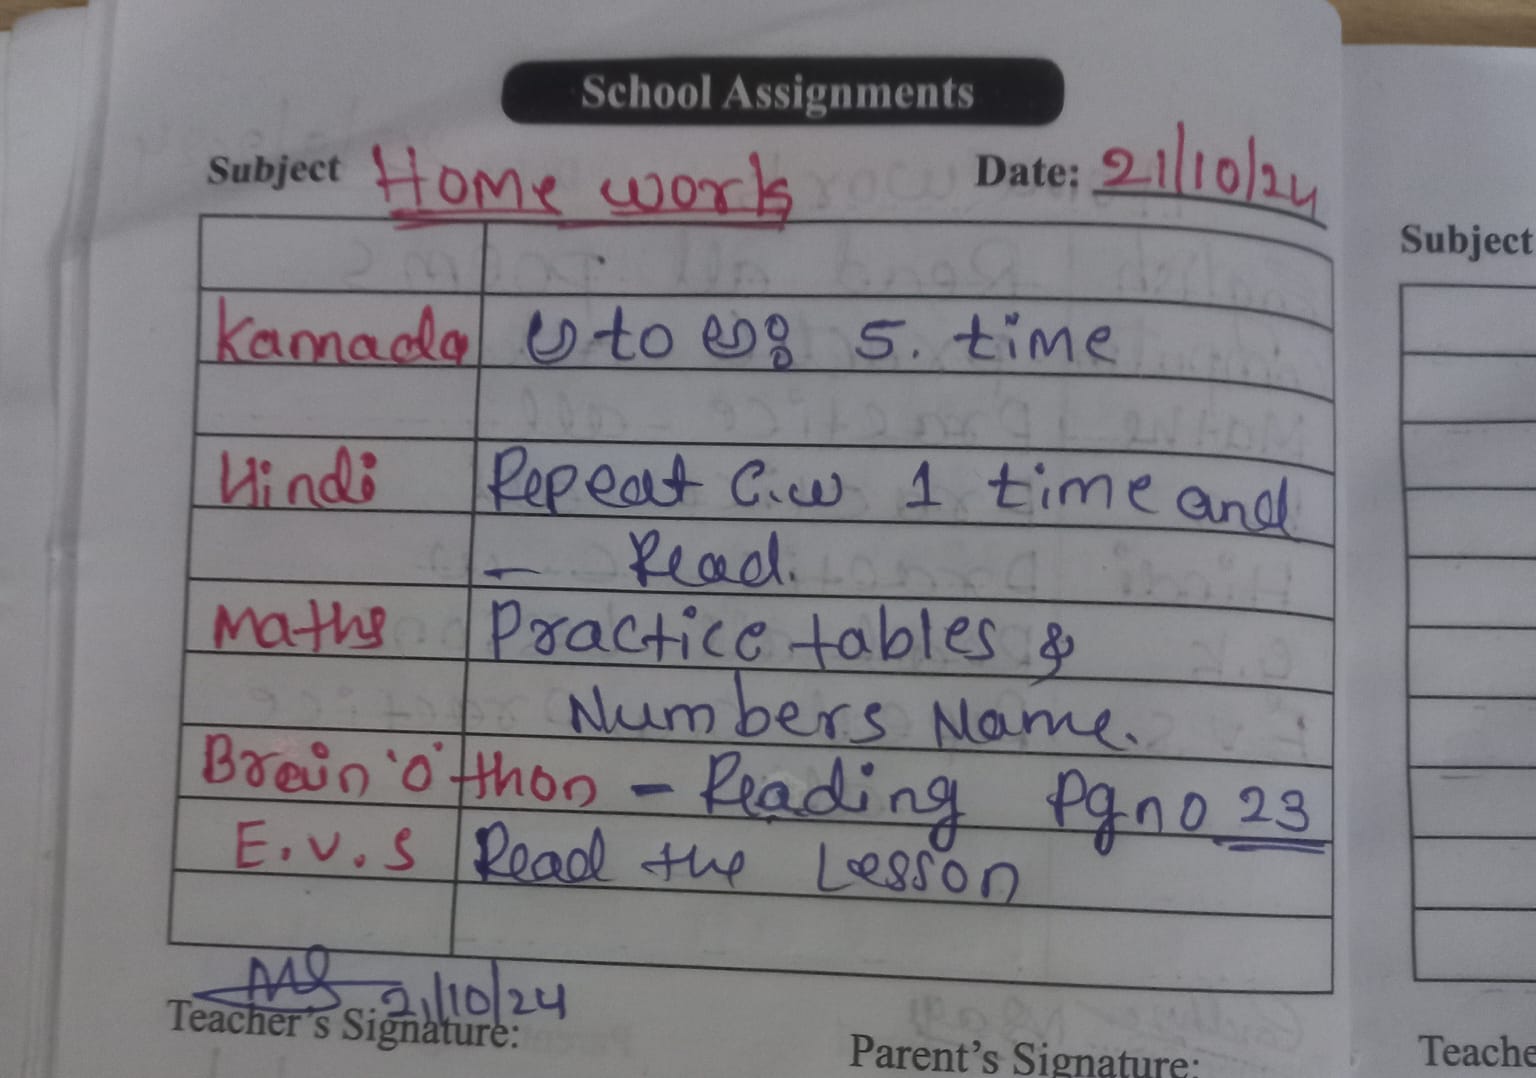 School Assignments
Subject Home work Date: 21/10/24
Kannada ಅ to ಅಃ 5. time
Hindi Repeat C.w 1 time and
- Read.
Maths Practice tables &
Numbers Name.
Brain 'O' thon - Reading Pg no 23
E.V.S Read the Lesson
21/10/24
Teacher's Signature:
Parent's Signature:
Subject
Teache